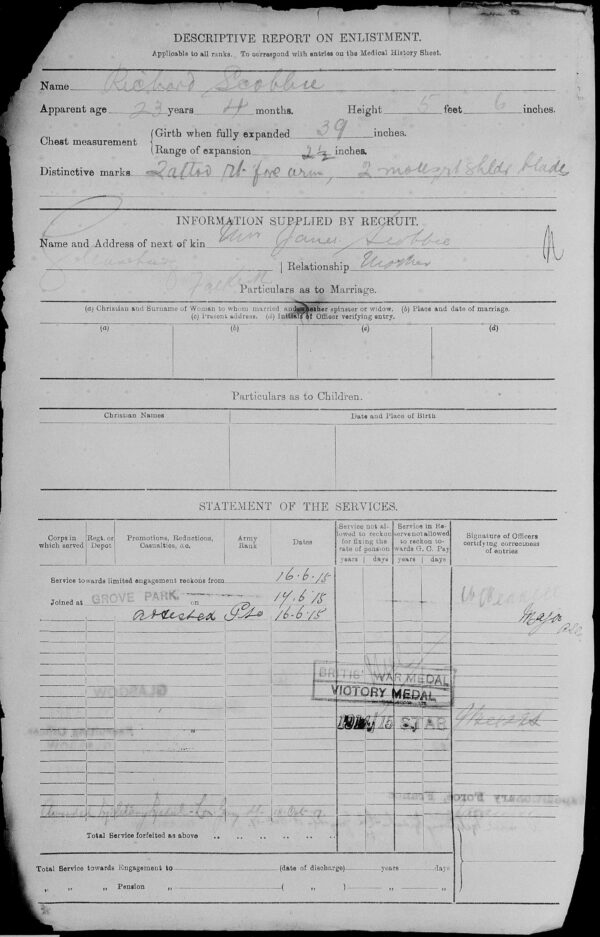 DESCRIPTIVE REPORT ON ENLISTMENT.
Applicable to all ranks. To correspond with entries on the Medical History Sheet.
Name Richard Scobbie
Apparent age 23 years 4 months. Height 5 feet 6 inches.
Chest measurement { Girth when fully expanded 39 inches.
Range of expansion 2½ inches.
Distinctive marks Tattoo rt. fore arm, 2 moles rt shldr blade
INFORMATION SUPPLIED BY RECRUIT.
Name and Address of next of kin Mrs Janet Scobbie
Falkirk | Relationship Mother
Particulars as to Marriage.
(a) Christian and Surname of Woman to whom married and whether spinster or widow. (b) Place and date of marriage.
(c) Present address. (d) Initials of Officer verifying entry.
(a) (b) (c) (d)
Particulars as to Children.
Christian Names Date and Place of Birth
STATEMENT OF THE SERVICES.
Corps in which served
Regt. or Depot
Promotions, Reductions, Casualties, &c.
Army Rank
Dates
Service not allowed to reckon for fixing the rate of pension
years days
Service in Reserve not allowed to reckon towards G. C. Pay
years days
Signature of Officers certifying correctness of entries
Service towards limited engagement reckons from 16.6.15
Joined at GROVE PARK on 17.6.15
attested Pte 16.6.15
Major
BRITISH WAR MEDAL
VICTORY MEDAL
STAR
GLASGOW
Expeditionary Force, France
Total Service forfeited as above
Total Service towards Engagement to (date of discharge) years days
" " Pension " ( " ) " "